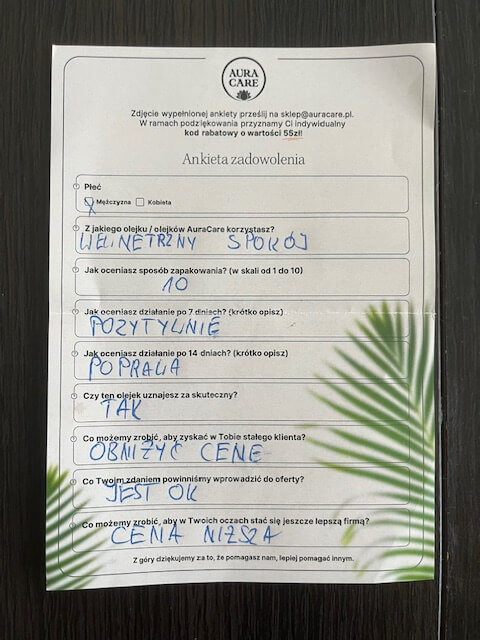 AURA
CARE
Zdjęcie wypełnionej ankiety prześlij na sklep@auracare.pl.
W ramach podziękowania przyznamy Ci indywidualny
kod rabatowy o wartości 55zł!
Ankieta zadowolenia
Płeć
Mężczyzna Kobieta
Z jakiego olejku / olejków AuraCare korzystasz?
WEWNETRZNY SPOKÓJ
Jak oceniasz sposób zapakowania? (w skali od 1 do 10)
10
Jak oceniasz działanie po 7 dniach? (krótko opisz)
POZYTYWNIE
Jak oceniasz działanie po 14 dniach? (krótko opisz)
POPRAWA
Czy ten olejek uznajesz za skuteczny?
TAK
Co możemy zrobić, aby zyskać w Tobie stałego klienta?
OBNIŻYĆ CENE
Co Twoim zdaniem powinniśmy wprowadzić do oferty?
JEST OK
Co możemy zrobić, aby w Twoich oczach stać się jeszcze lepszą firmą?
CENA NIŻSZA
Z góry dziękujemy za to, że pomagasz nam, lepiej pomagać innym.